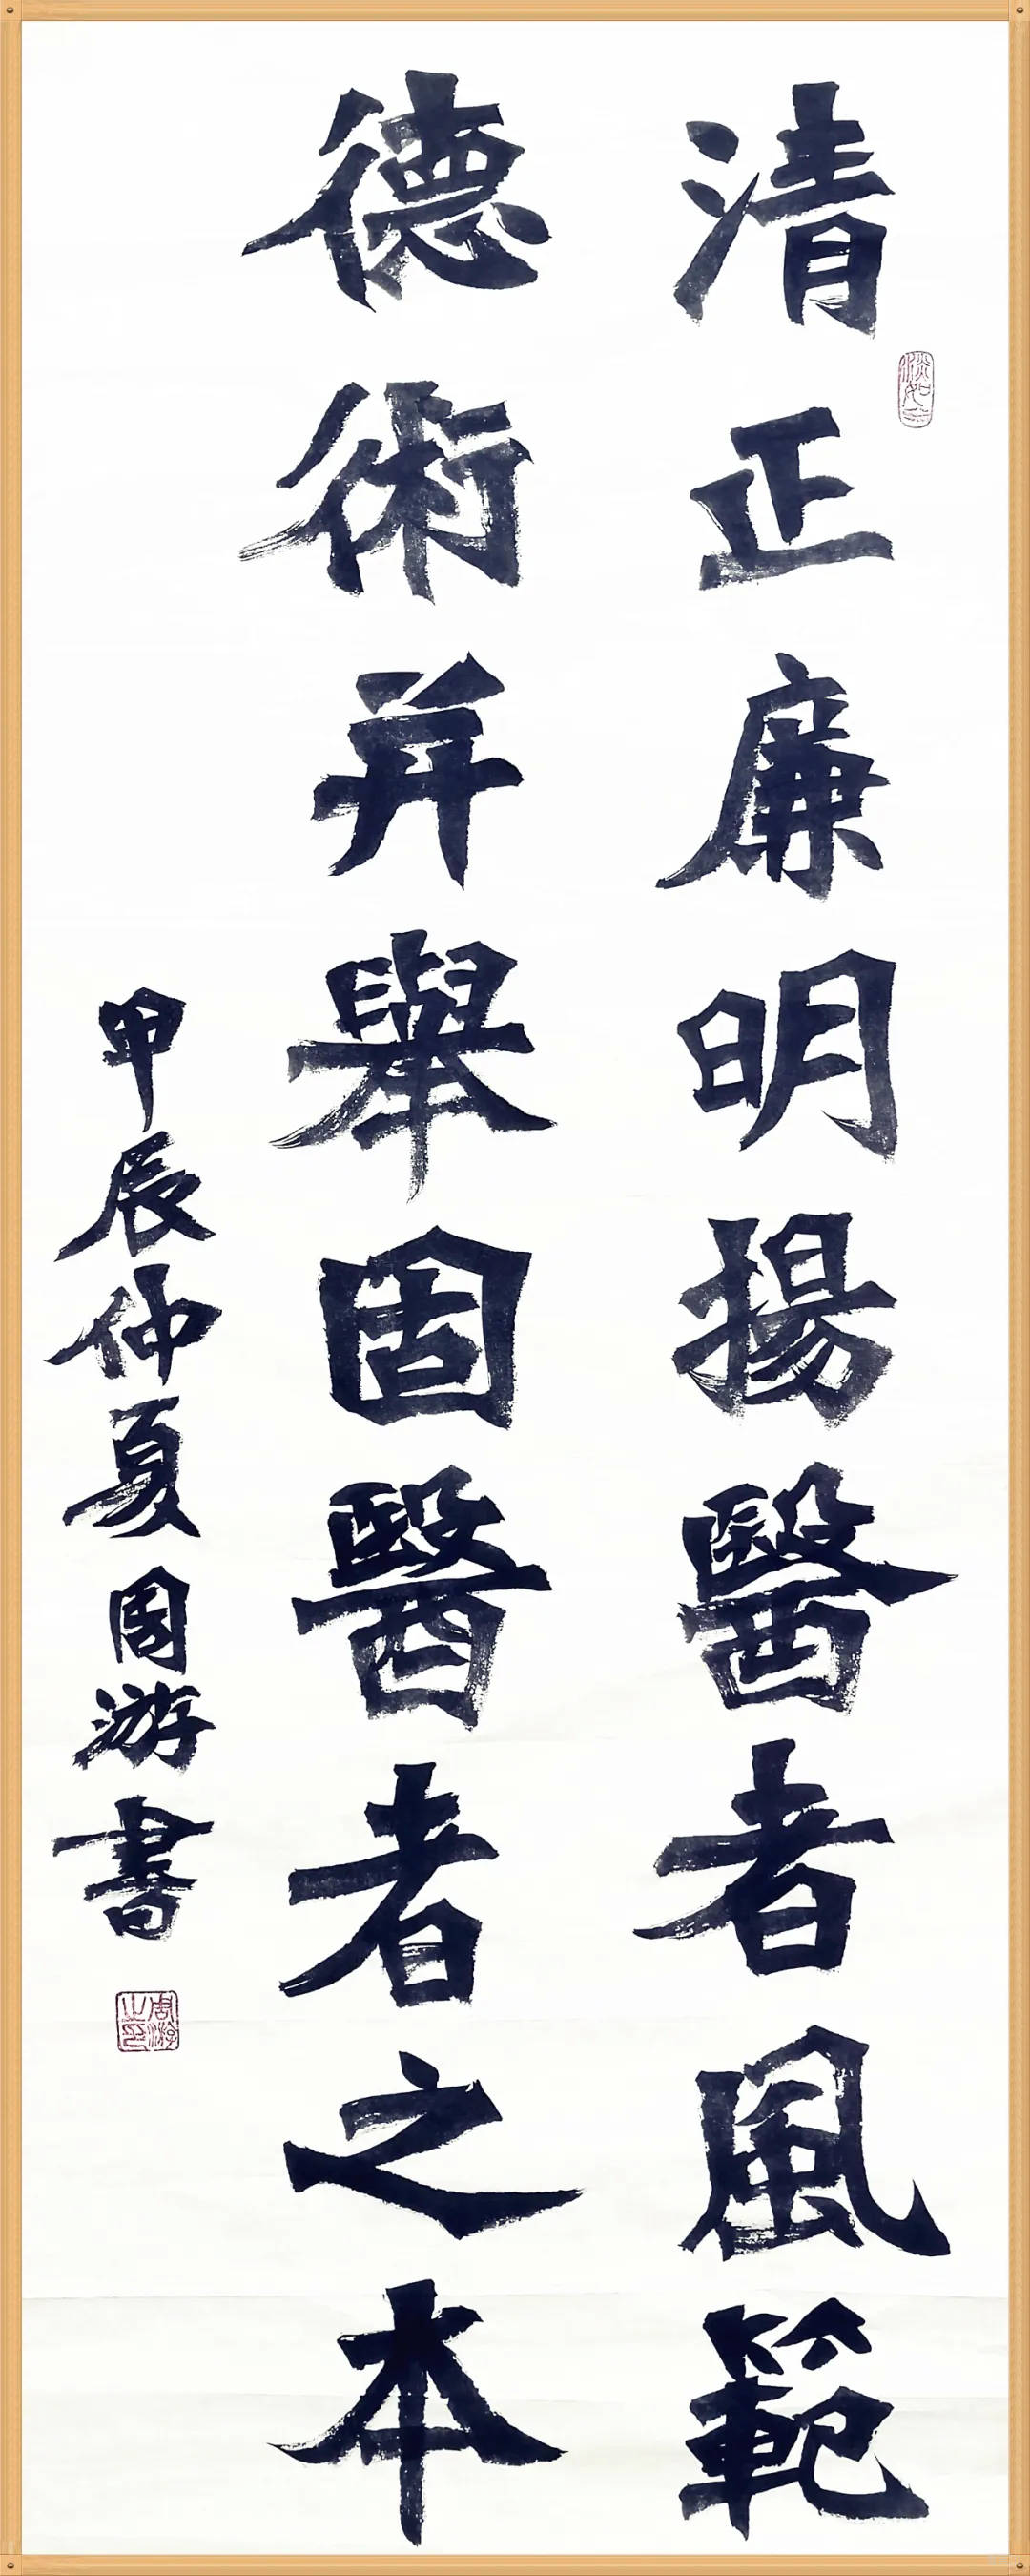 清正廉明揚醫者風範
淡如
德術并舉固醫者之本
甲辰仲夏周游書
周游之印